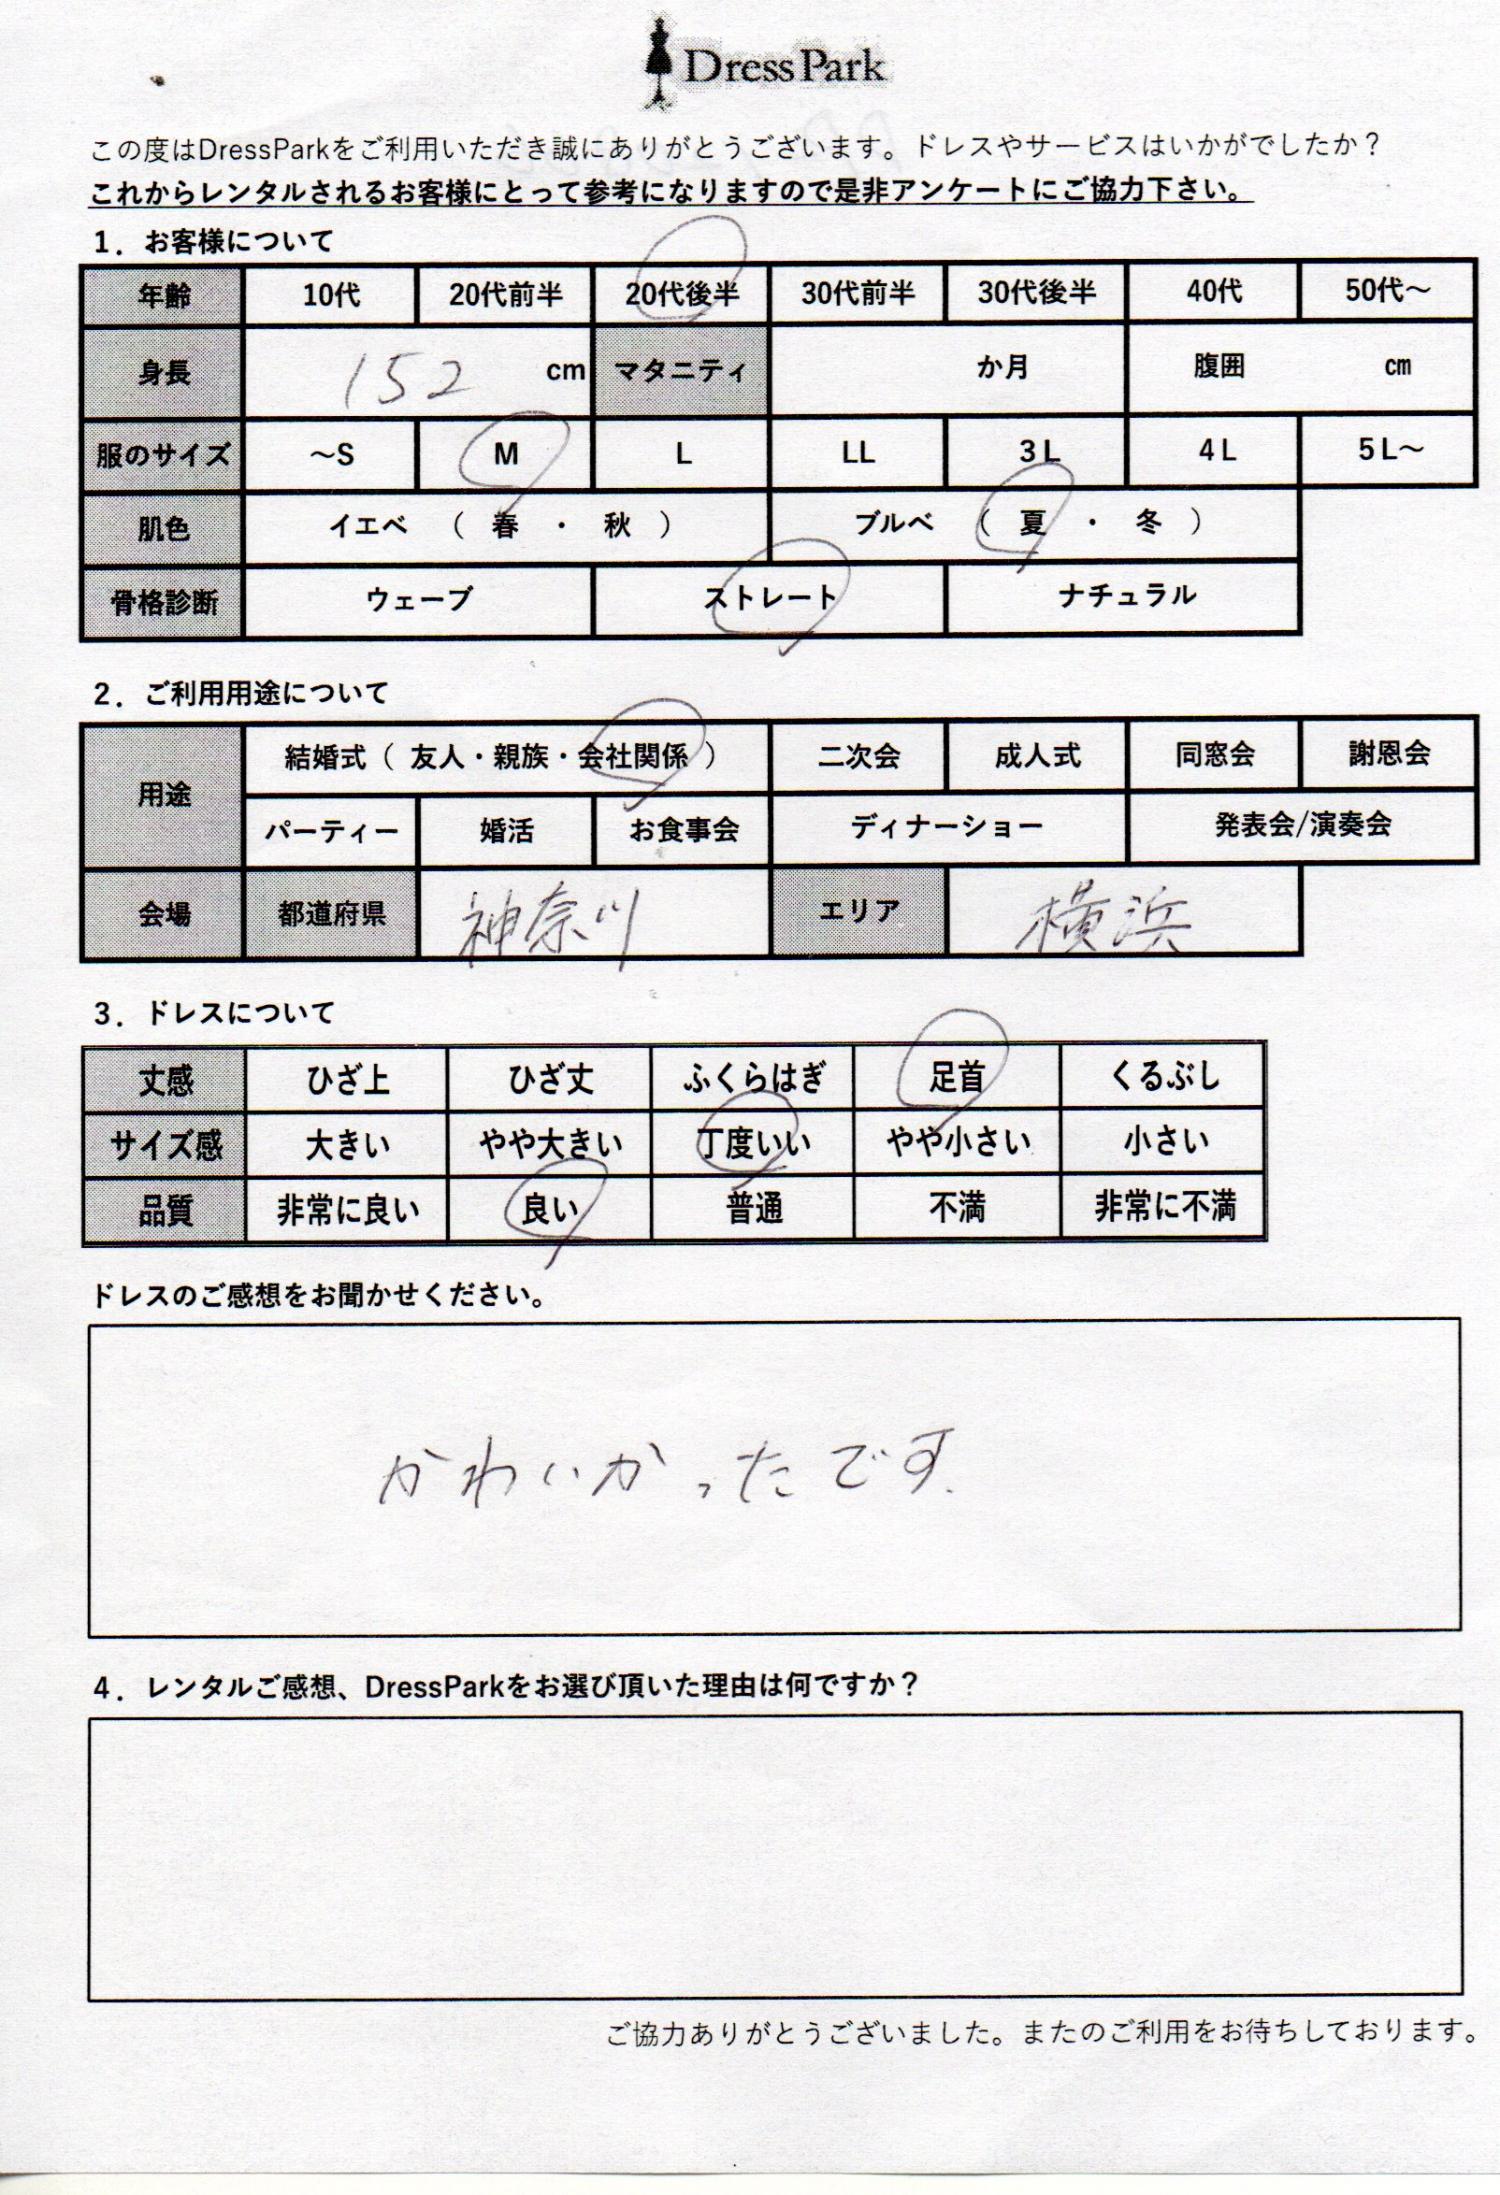 DressPark
この度はDressParkをご利用いただき誠にありがとうございます。ドレスやサービスはいかがでしたか？
これからレンタルされるお客様にとって参考になりますので是非アンケートにご協力下さい。
1．お客様について
年齢 10代 20代前半 20代後半 30代前半 30代後半 40代 50代～
身長 152 cm マタニティ か月 腹囲 ㎝
服のサイズ ～S M L LL 3L 4L 5L～
肌色 イエベ （ 春 ・ 秋 ） ブルベ （ 夏 ・ 冬 ）
骨格診断 ウェーブ ストレート ナチュラル
2．ご利用用途について
用途 結婚式（ 友人・親族・会社関係 ） 二次会 成人式 同窓会 謝恩会
パーティー 婚活 お食事会 ディナーショー 発表会/演奏会
会場 都道府県 神奈川 エリア 横浜
3．ドレスについて
丈感 ひざ上 ひざ丈 ふくらはぎ 足首 くるぶし
サイズ感 大きい やや大きい 丁度いい やや小さい 小さい
品質 非常に良い 良い 普通 不満 非常に不満
ドレスのご感想をお聞かせください。
かわいかったです.
4．レンタルご感想、DressParkをお選び頂いた理由は何ですか？
ご協力ありがとうございました。またのご利用をお待ちしております。